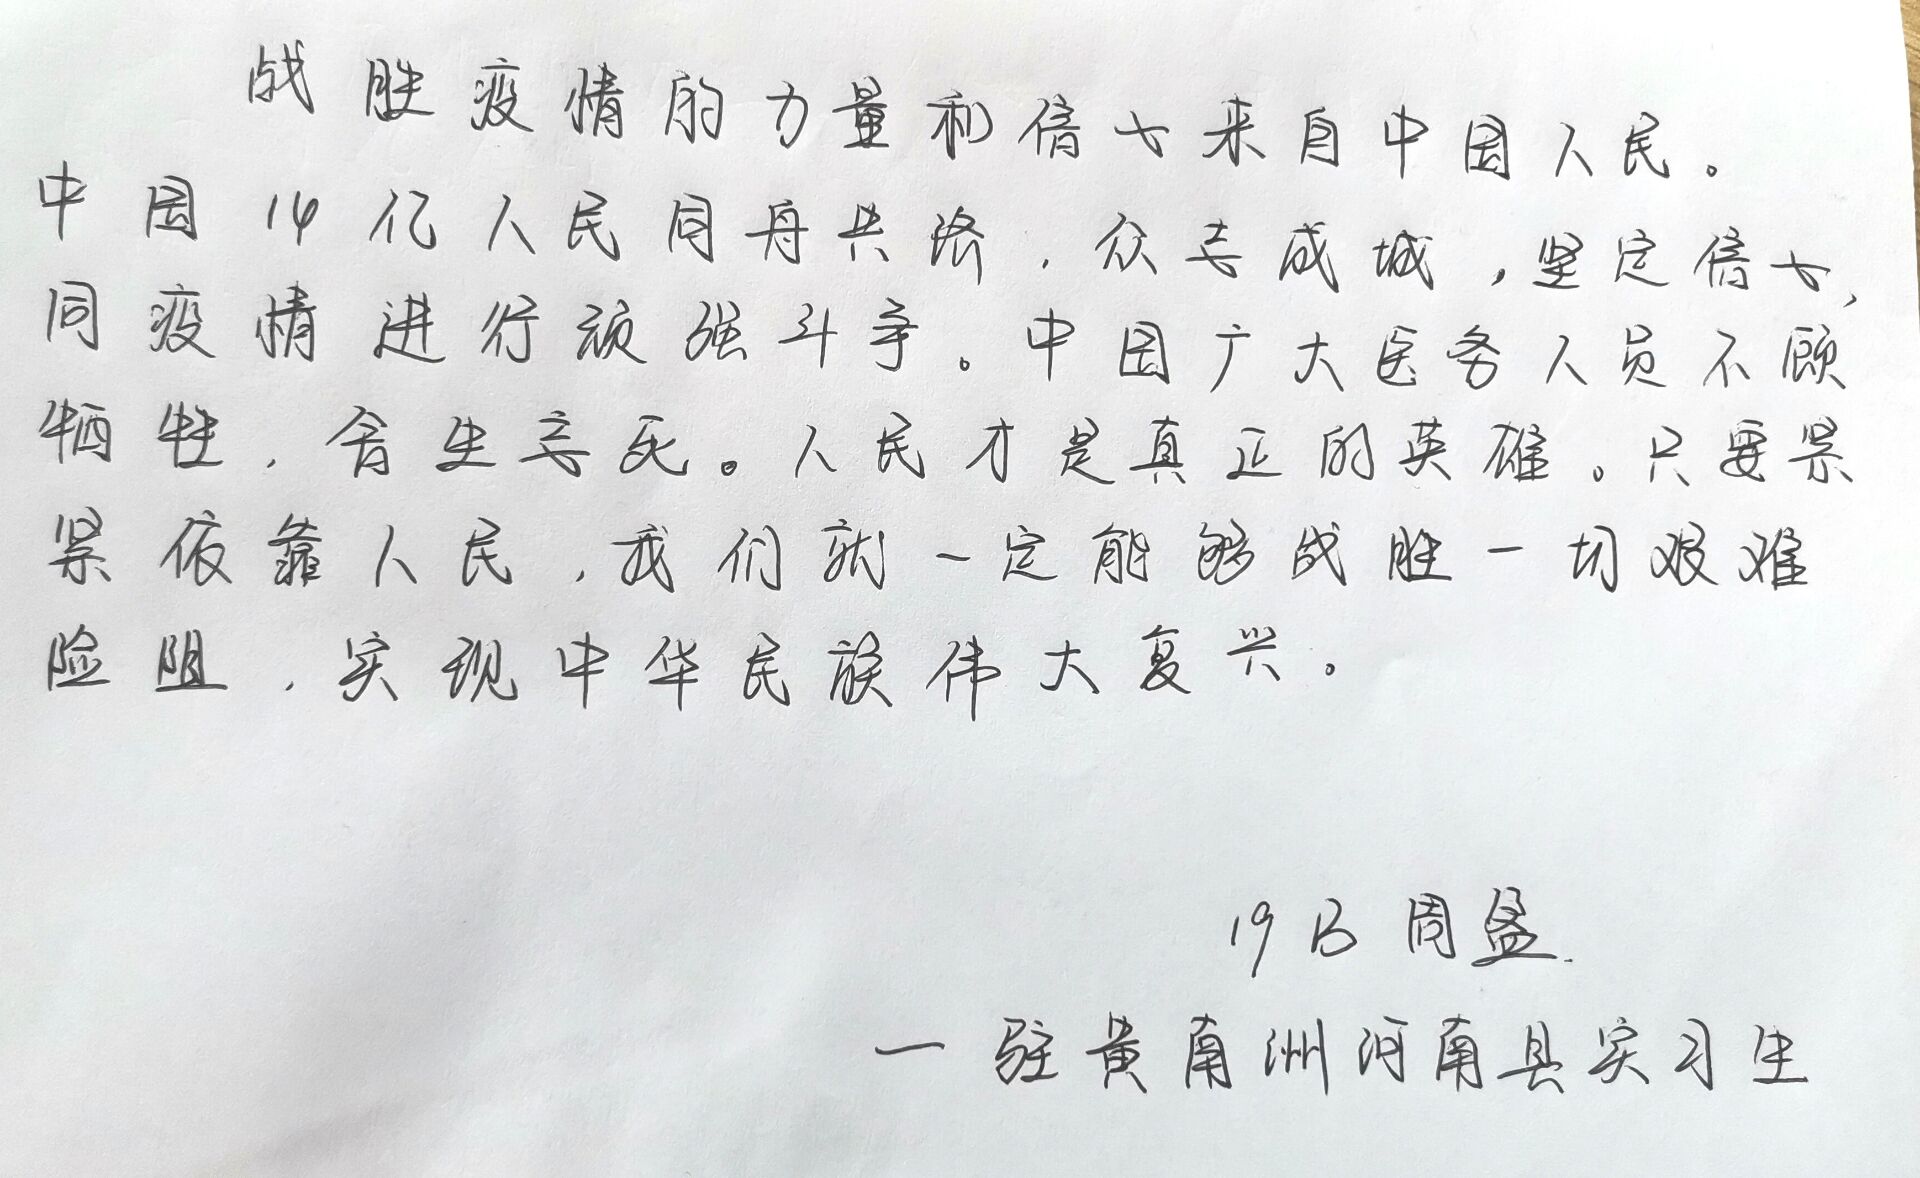 战胜疫情的力量和信心来自中国人民。
中国14亿人民同舟共济，众志成城，坚定信心，
同疫情进行顽强斗争。中国广大医务人员不顾
牺牲，舍生忘死。人民才是真正的英雄。只要紧
紧依靠人民，我们就一定能够战胜一切艰难
险阻，实现中华民族伟大复兴。
19B 周盈.
一驻黄南洲河南县实习生